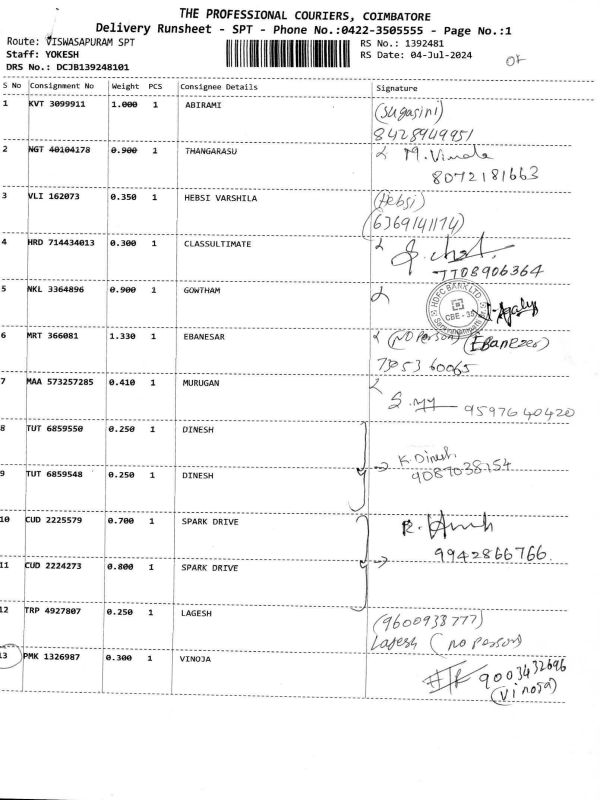 THE PROFESSIONAL COURIERS, COIMBATORE
Delivery Runsheet - SPT - Phone No.:0422-3505555 - Page No.:1
Route: VISWASAPURAM SPT RS No.: 1392481
Staff: YOKESH RS Date: 04-Jul-2024
DRS No.: DCJB139248101
S No Consignment No Weight PCS Consignee Details Signature
1 KVT 3099911 1.000 1 ABIRAMI (Sugasini)
8428949951
2 NGT 40104178 0.900 1 THANGARASU M. Vimala
8072181663
3 VLI 162073 0.350 1 HEBSI VARSHILA (Hebsi)
(6369141174)
4 HRD 714434013 0.300 1 CLASSULTIMATE
7708906364
5 NKL 3364896 0.900 1 GOWTHAM HDFC BANK LTD CBE - 35
6 MRT 366081 1.330 1 EBANESAR (NO Person) (Ebanezer)
7305360065
7 MAA 573257285 0.410 1 MURUGAN
9597640420
8 TUT 6859550 0.250 1 DINESH
K. Dinesh
9087038154
9 TUT 6859548 0.250 1 DINESH
10 CUD 2225579 0.700 1 SPARK DRIVE
9942866766
11 CUD 2224273 0.800 1 SPARK DRIVE
12 TRP 4927807 0.250 1 LAGESH (9600938777)
Lagesh (no person)
13 PMK 1326987 0.300 1 VINOJA 9003432696
(Vinosa)